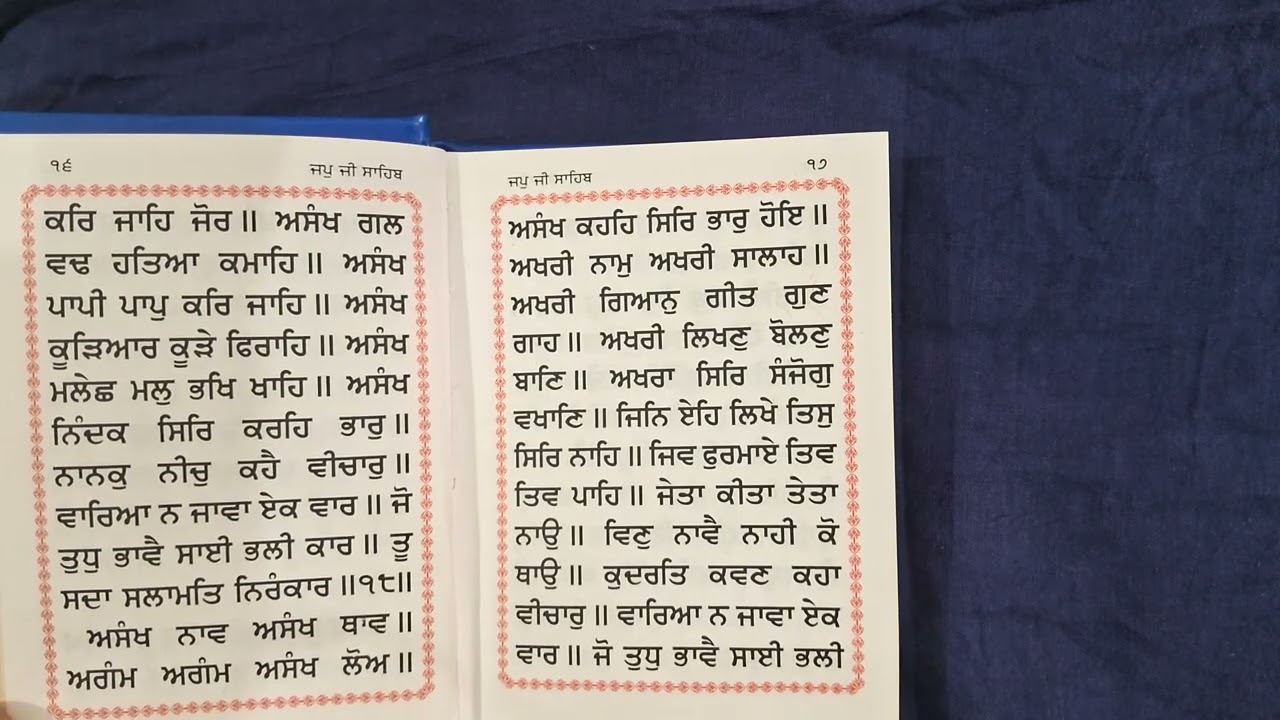 ੧੬
ਜਪੁ ਜੀ ਸਾਹਿਬ
ਕਰਿ ਜਾਹਿ ਜੋਰ ॥ ਅਸੰਖ ਗਲ
ਵਢ ਹਤਿਆ ਕਮਾਹਿ ॥ ਅਸੰਖ
ਪਾਪੀ ਪਾਪੁ ਕਰਿ ਜਾਹਿ ॥ ਅਸੰਖ
ਕੂੜਿਆਰ ਕੂੜੇ ਫਿਰਾਹਿ ॥ ਅਸੰਖ
ਮਲੇਛ ਮਲੁ ਭਖਿ ਖਾਹਿ ॥ ਅਸੰਖ
ਨਿੰਦਕ ਸਿਰਿ ਕਰਹਿ ਭਾਰੁ ॥
ਨਾਨਕੁ ਨੀਚੁ ਕਹੈ ਵੀਚਾਰੁ ॥
ਵਾਰਿਆ ਨ ਜਾਵਾ ਏਕ ਵਾਰ ॥ ਜੋ
ਤੁਧੁ ਭਾਵੈ ਸਾਈ ਭਲੀ ਕਾਰ ॥ ਤੂ
ਸਦਾ ਸਲਾਮਤਿ ਨਿਰੰਕਾਰ ॥੧੮॥
ਅਸੰਖ ਨਾਵ ਅਸੰਖ ਥਾਵ ॥
ਅਗੰਮ ਅਗੰਮ ਅਸੰਖ ਲੋਅ ॥
ਜਪੁ ਜੀ ਸਾਹਿਬ
੧੭
ਅਸੰਖ ਕਹਹਿ ਸਿਰਿ ਭਾਰੁ ਹੋਇ ॥
ਅਖਰੀ ਨਾਮੁ ਅਖਰੀ ਸਾਲਾਹ ॥
ਅਖਰੀ ਗਿਆਨੁ ਗੀਤ ਗੁਣ
ਗਾਹ ॥ ਅਖਰੀ ਲਿਖਣੁ ਬੋਲਣੁ
ਬਾਣਿ ॥ ਅਖਰਾ ਸਿਰਿ ਸੰਜੋਗੁ
ਵਖਾਣਿ ॥ ਜਿਨਿ ਏਹਿ ਲਿਖੇ ਤਿਸੁ
ਸਿਰਿ ਨਾਹਿ ॥ ਜਿਵ ਫੁਰਮਾਏ ਤਿਵ
ਤਿਵ ਪਾਹਿ ॥ ਜੇਤਾ ਕੀਤਾ ਤੇਤਾ
ਨਾਉ ॥ ਵਿਣੁ ਨਾਵੈ ਨਾਹੀ ਕੋ
ਥਾਉ ॥ ਕੁਦਰਤਿ ਕਵਣ ਕਹਾ
ਵੀਚਾਰੁ ॥ ਵਾਰਿਆ ਨ ਜਾਵਾ ਏਕ
ਵਾਰ ॥ ਜੋ ਤੁਧੁ ਭਾਵੈ ਸਾਈ ਭਲੀ